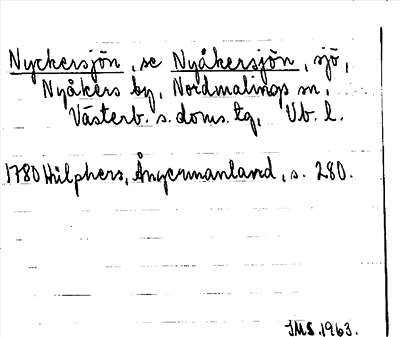 Nyckersjön, se Nyåkersjön, sjö,
Nyåkers by, Nordmalings sn,
Västerb. s. doms. tg, Vb. l.
1780 Hülphers, Ångermanland, s. 280.
JMS. 1963.